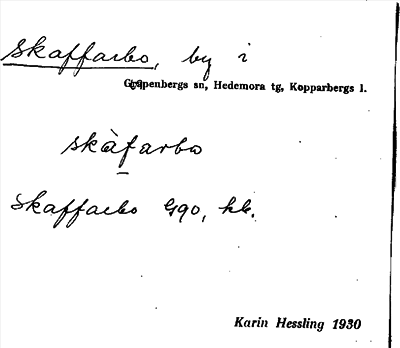 Skaffarbo, by i
Garpenbergs sn, Hedemora tg, Kopparbergs l.
skàfarbo
Skaffarbo
Karin Hessling 1930